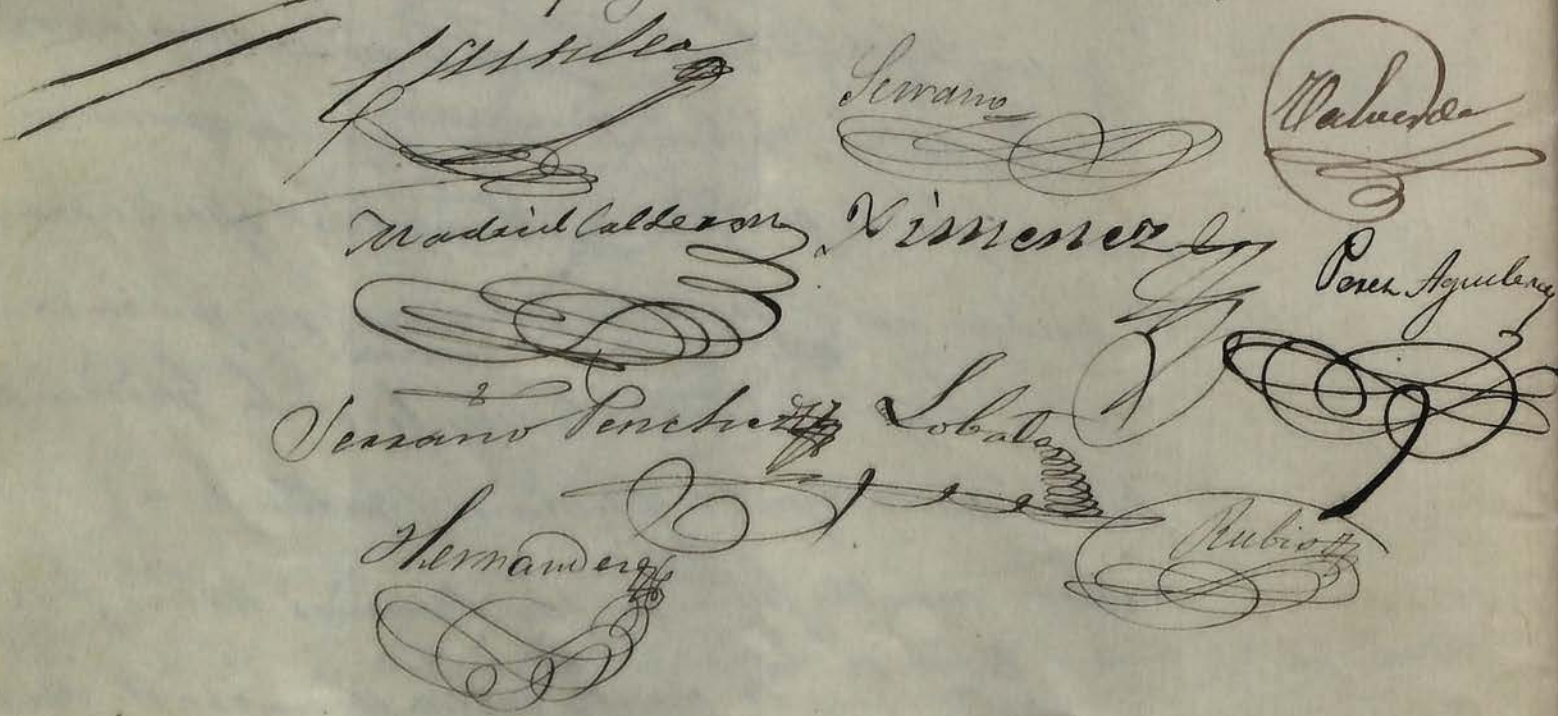 Serrano Valverde
Madrid Calderon Ximenez Perez Aguilera
Serrano Lobato
Hernandez Rubio